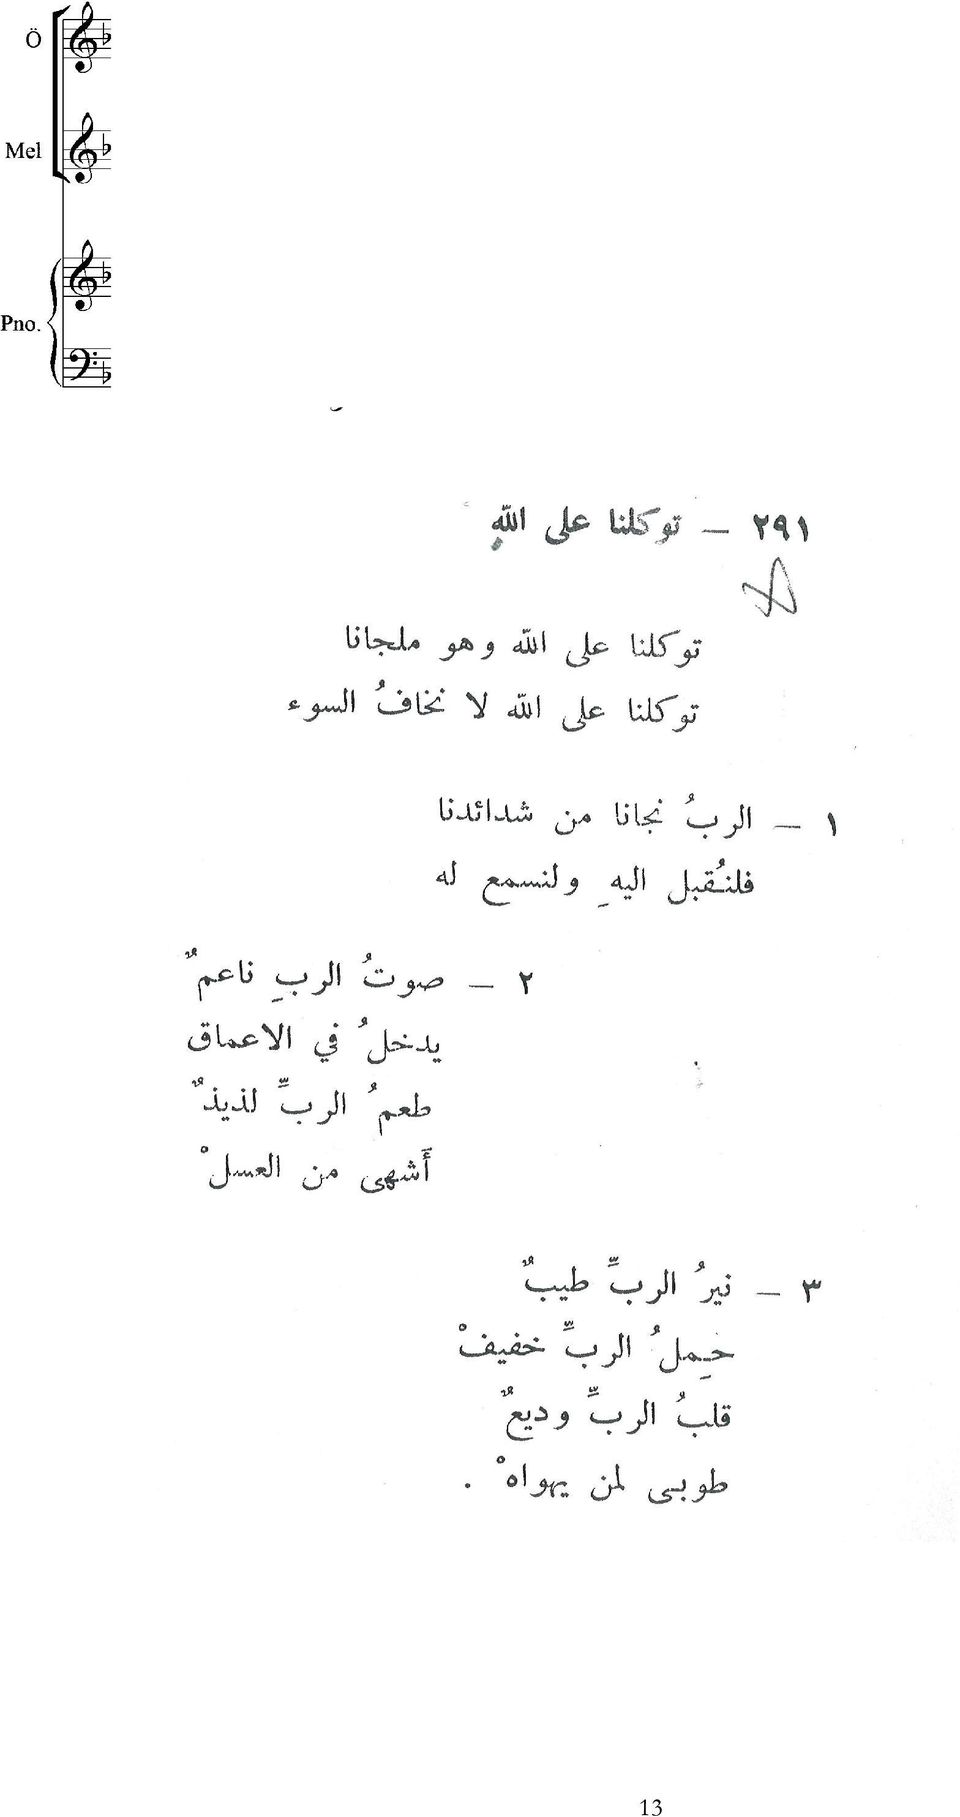 Ö
Mel
Pno.
٢٩١ – توكلنا على اللهِ
توكلنا على الله وهو ملجانا
توكلنا على الله لا نخافُ السوء
١ – الربُ نجانا من شدائدنا
فلنُقبل اليهِ ولنسمع له
٢ – صوتُ الربِ ناعمٌ
يدخلُ في الاعماق
طعمُ الربِّ لذيذٌ
أشهى من العسلْ
٣ – نيرُ الربِّ طيبٌ
حِملُ الربِّ خفيفْ
قلبُ الربِّ وديعٌ
طوبى لمن يهواهْ .
13